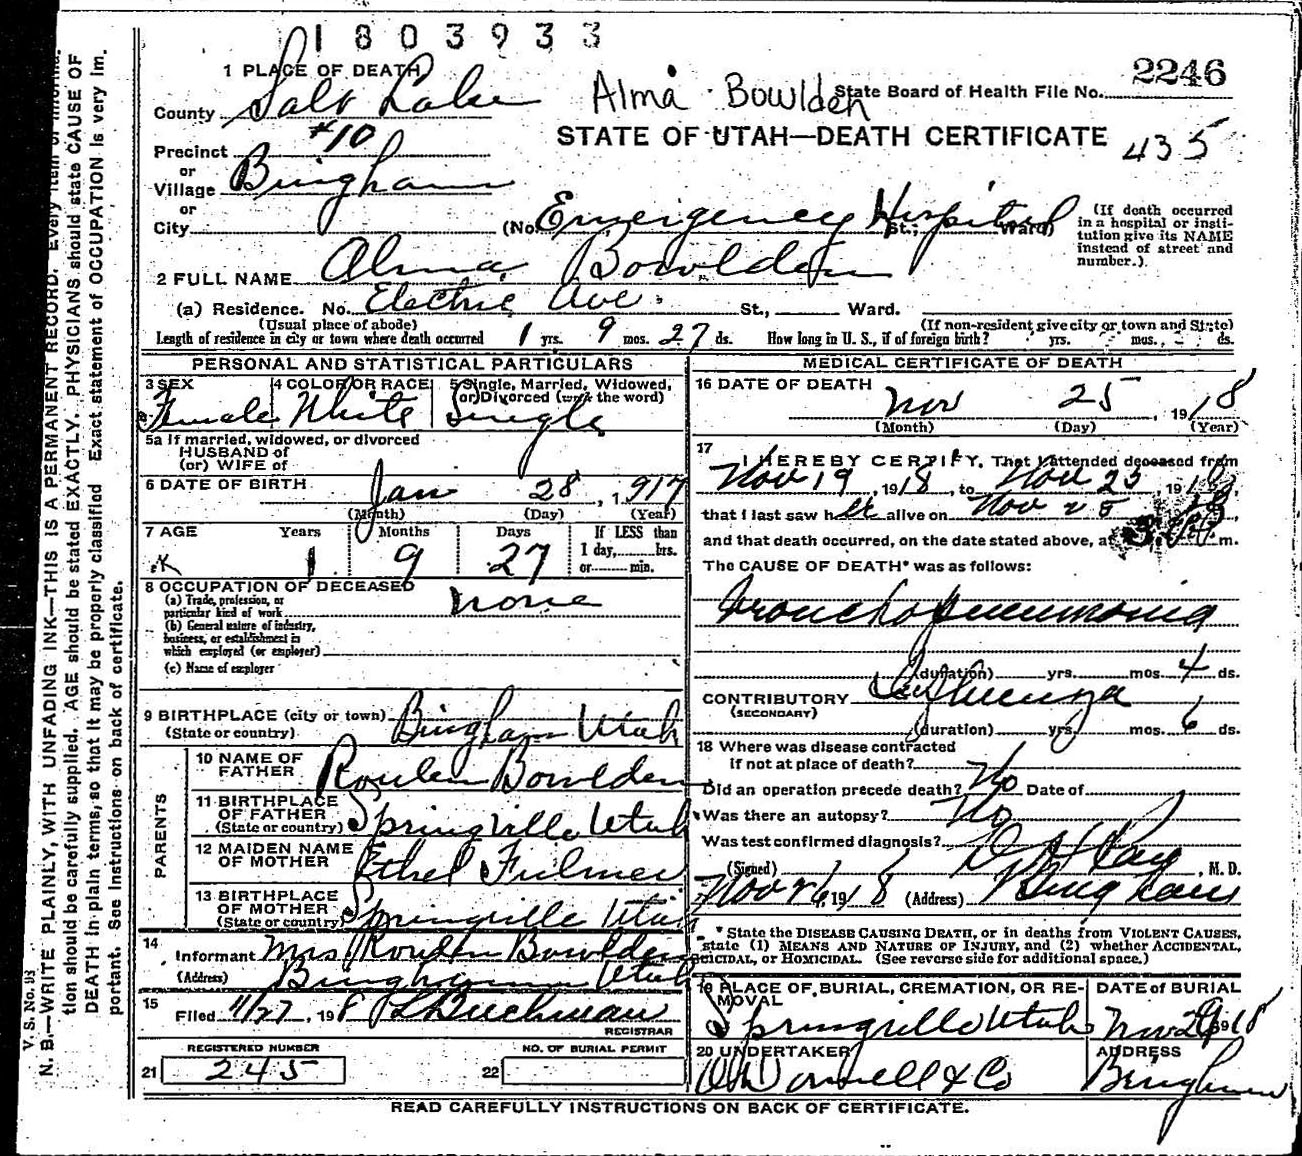 1803933
1 PLACE OF DEATH
2246
County Salt Lake
Alma Bowlden
State Board of Health File No.
STATE OF UTAH—DEATH CERTIFICATE
435
Precinct #10
or
Village Bingham
or
City
(No. Emergency Hospital St.; Ward)
(If death occurred in a hospital or institution give its NAME instead of street and number.)
2 FULL NAME Alma Bowlden
(a) Residence. No. Electric Ave. St., Ward.
(Usual place of abode)
(If non-resident give city or town and State)
Length of residence in city or town where death occurred 1 yrs. 9 mos. 27 ds.
How long in U. S., if of foreign birth? yrs. mos. ds.
PERSONAL AND STATISTICAL PARTICULARS
3 SEX Female
4 COLOR OR RACE White
5 Single, Married, Widowed, (or) Divorced (write the word) Single
5a If married, widowed, or divorced
HUSBAND of
(or) WIFE of
6 DATE OF BIRTH
Jan 28, 1917
(Month) (Day) (Year)
7 AGE Years Months Days
1 9 27
If LESS than
1 day, hrs.
or min.
8 OCCUPATION OF DECEASED none
(a) Trade, profession, or
particular kind of work
(b) General nature of industry,
business, or establishment in
which employed (or employer)
(c) Name of employer
9 BIRTHPLACE (city or town) Bingham Utah
(State or country)
PARENTS
10 NAME OF FATHER Roulen Bowlden
11 BIRTHPLACE OF FATHER (State or country) Springville Utah
12 MAIDEN NAME OF MOTHER Ethel Fulmer
13 BIRTHPLACE OF MOTHER (State or country) Springville Utah
14
Informant Mrs Roulen Bowlden
(Address) Bingham Utah
15
Filed 11/27, 1918
REGISTRAR
REGISTERED NUMBER
21 245
NO. OF BURIAL PERMIT
22
MEDICAL CERTIFICATE OF DEATH
16 DATE OF DEATH
Nov 25, 1918
(Month) (Day) (Year)
17
I HEREBY CERTIFY, That I attended deceased from
Nov 19, 1918, to Nov 25, 1918,
that I last saw her alive on Nov 25
and that death occurred, on the date stated above, at m.
The CAUSE OF DEATH* was as follows:
Broncho pneumonia
(duration) yrs. mos. 4 ds.
CONTRIBUTORY Influenza
(SECONDARY)
(duration) yrs. mos. 6 ds.
18 Where was disease contracted
if not at place of death?
Did an operation precede death? No Date of
Was there an autopsy? No
Was test confirmed diagnosis?
(Signed) M. D.
Nov 26, 1918 (Address) Bingham
* State the DISEASE CAUSING DEATH, or in deaths from VIOLENT CAUSES,
state (1) MEANS AND NATURE OF INJURY, and (2) whether ACCIDENTAL,
SUICIDAL, or HOMICIDAL. (See reverse side for additional space.)
19 PLACE OF BURIAL, CREMATION, OR REMOVAL
Springville Utah
DATE of BURIAL
Nov 1918
20 UNDERTAKER
O'Donnell & Co
ADDRESS
Bingham
READ CAREFULLY INSTRUCTIONS ON BACK OF CERTIFICATE.
V. S. No. 93
N. B.—WRITE PLAINLY, WITH UNFADING INK—THIS IS A PERMANENT RECORD. Every item of informa-
tion should be carefully supplied. AGE should be stated EXACTLY. PHYSICIANS should state CAUSE OF
DEATH in plain terms, so that it may be properly classified Exact statement of OCCUPATION is very im.
portant. See Instructions on back of certificate.